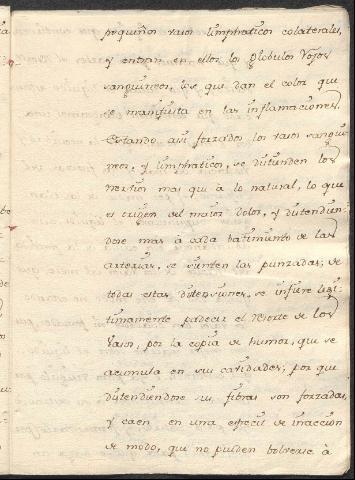 pequeños vasos limphaticos colaterales,
y entran en ellos los globulos roxos
sanguineos, los que dan el color que
se manifiesta en las inflamaciones.
Estando asi forzados los vasos sangui-
neos, y limphaticos, se distienden los
nervios mas que à lo natural, lo que
es origen del maior dolor, y distendien-
dose mas à cada batimiento de las
arterias, se sienten las punzadas; de
todas estas distensiones, se infiere legi-
timamente padecer el resorte de los
vasos, por la copia de humor, que se
acumula en sus cavidades; por que
distendiendose sus fibras son forzadas,
y caen en una especie de inaccion
de modo, que no pueden bolverse à